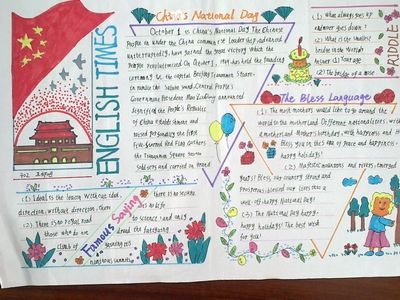 China's National Day
ENGLISH TIMES
October 1 is China's National Day. The Chinese
People in under the China communist Leadership advanced
uninterruptedly, have gained the great victory which the
people revolutionized On October 1, Mao has held the founding
ceremony in the capital Beijing Tiananmen Square
Government President Mao Zedong announced
the People's Republic
of China establishment and
raised personally the first
Five-Starred Red Flag. Gathers
the Tiananmen Square
Soldiers and carried on grand
(1) What always goes up
and never goes down?
(2) What is the smallest
bridge in the world?
Answer: (1) Your age
(2) The bridge of a nose
RIDDLE
The Bless Language
(1) The most mothers would like to go around the
world to the motherland Different nationalities, with
a motherland Mother's birthday, with happiness and
Bless you in the sea of peace and happiness,
happy holidays!
(2) Majestic mountains and rivers, emerged
years! Bless our country strong and
prosperous, blessed our lives into a
well-off happy National Day!
(3) The National Day happy,
happy holidays! The best wish
for you!
Famous Saying
(1) Ideal is the beacon. Without ideal,
there is no secure
direction; without direction, there
is no life
(2) There is no royal road
to science, and only
those who do not
dread the fatiguing
climb of
gaining its
numinous summits